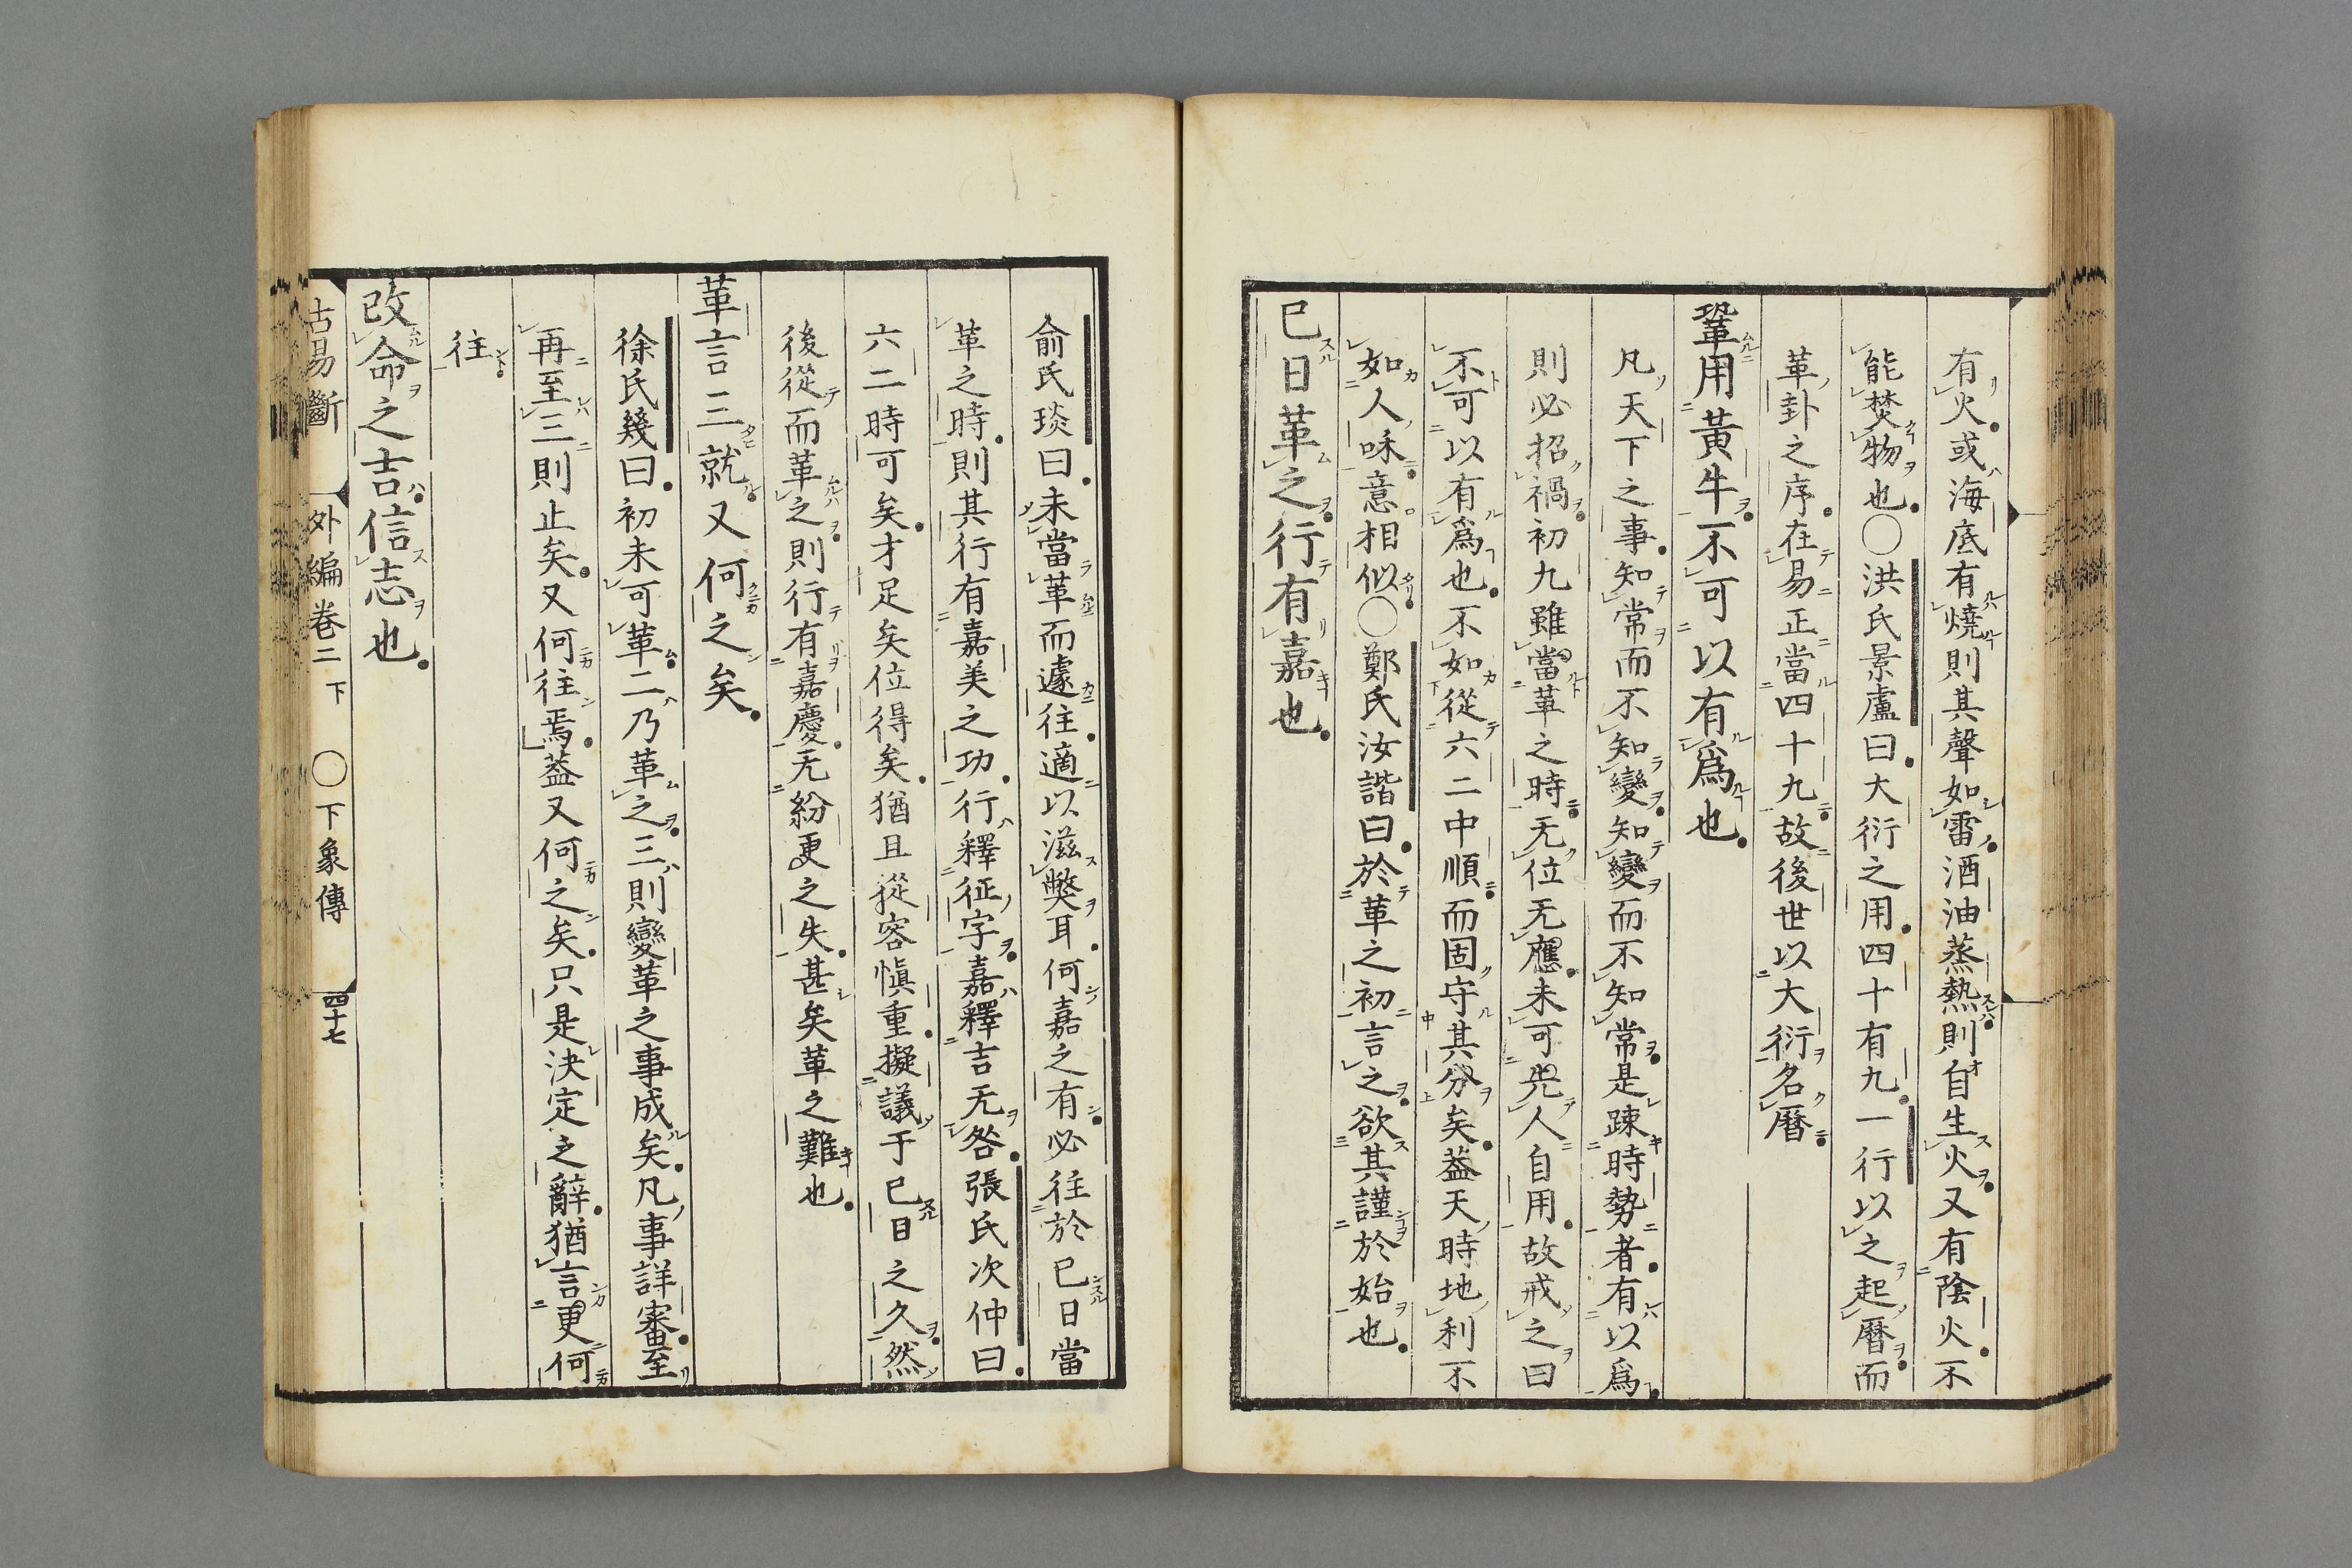 有火或海底有燒則其聲如雷酒油蒸熱則自生火又有陰火不
能焚物也○洪氏景盧曰大衍之用四十有九一行以之起曆而
革卦之序在易正當四十九故後世以大衍名曆
鞏用黃牛不可以有爲也
凡天下之事知常而不知變知變而不知常是踈時勢者有以爲
則必招禍初九雖當革之時无位无應未可先人自用故戒之曰
不可以有爲也不如從六二中順而固守其分矣葢天時地利不
如人咊意相似○鄭氏汝諧曰於革之初言之欲其謹於始也
巳日革之行有嘉也
俞氏琰曰未當革而遽往適以滋獘耳何嘉之有必往於巳日當
革之時則其行有嘉美之功行釋征字嘉釋吉无咎張氏次仲曰
六二時可矣才足矣位得矣猶且從容愼重擬議于巳日之久然
後從而革之則行有嘉慶无紛更之失甚矣革之難也
革言三就又何之矣
徐氏幾曰初未可革二乃革之三則變革之事成矣凡事詳審至
再至三則止矣又何往焉葢又何之矣只是決定之辭猶言更何
往
改命之吉信志也
古易斷 外編卷二下 ○下象傳 四十七